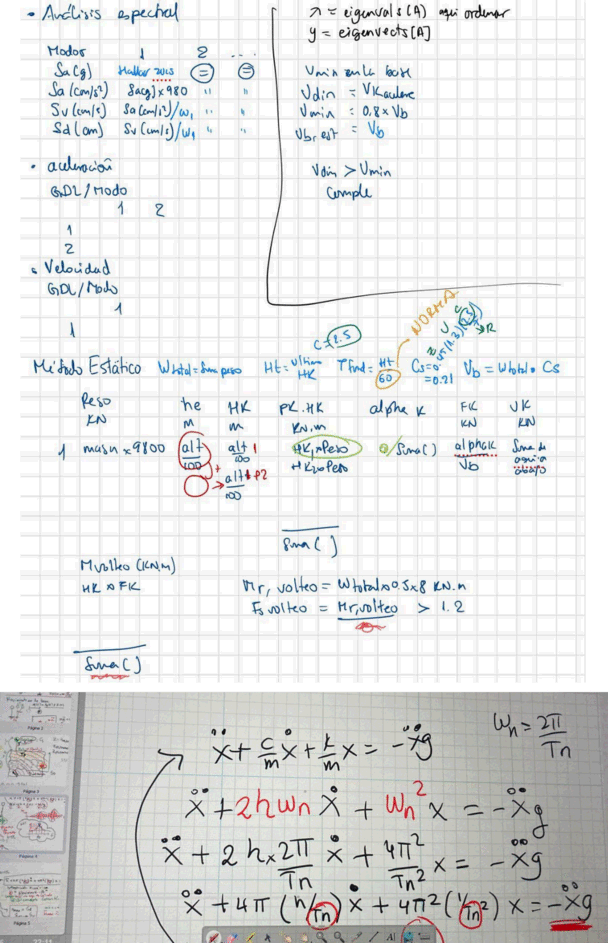 • Análisis espectral
Modos 1 2 ...
Sa(g) Hallar 2ucs = =
Sa(cm/s²) Sa(g)×980 " "
Sv(cm/s) Sa(cm/s²)/w₁ " "
Sd(cm) Sv(cm/s)/w₁ " "
• aceleración
GDL/Modo
1 2
1
2
• Velocidad
GDL/Modo
1
1
λ = eigenvals(A) aqui ordenar
y = eigenvects[A]
Vmin en la base
Vdin = VKacelere
Vmin = 0.8×Vb
Vb,est = Vb
Vdin > Vmin
Cumple
NORMA
C=2.5
Método Estático Wtotal=Suma peso Ht=ultimo HK Tfund=Ht/60 =0.21 Vb=Wtotal·Cs
Peso he HK PK.HK alpha K FK VK
KN m m KN.m KN KN
1 masa×9800 alt/100 alt 1/100 HK₁×Peso Ⓞ/Suma() alphaK/Vb Suma de aqui a abajo
+ → alt1+2/100 HK₂×Peso
Suma()
Mvolteo (KN.m)
HK×FK
Mr, volteo = Wtotal×0.5×8 KN.m
Fs volteo = Mr,volteo > 1.2
Suma()
ẍ + c/m ẋ + k/m x = -ẍg
Wn = 2π/Tn
ẍ + 2hwn ẋ + Wn² x = -ẍg
ẍ + 2h×2π/Tn ẋ + 4π²/Tn² x = -ẍg
ẍ + 4π (h/Tn) ẋ + 4π² (1/Tn²) x = -ẍg